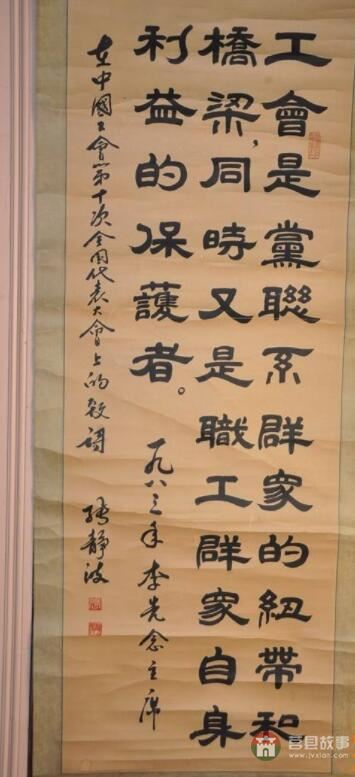 工會是黨聯系群衆的紐帶和
橋梁，同時又是職工群衆自身
利益的保護者。
一九八三年李先念主席
在中國工會第十次全国代表大會上的致詞
張靜波
莒县故事
www.jvxian.com